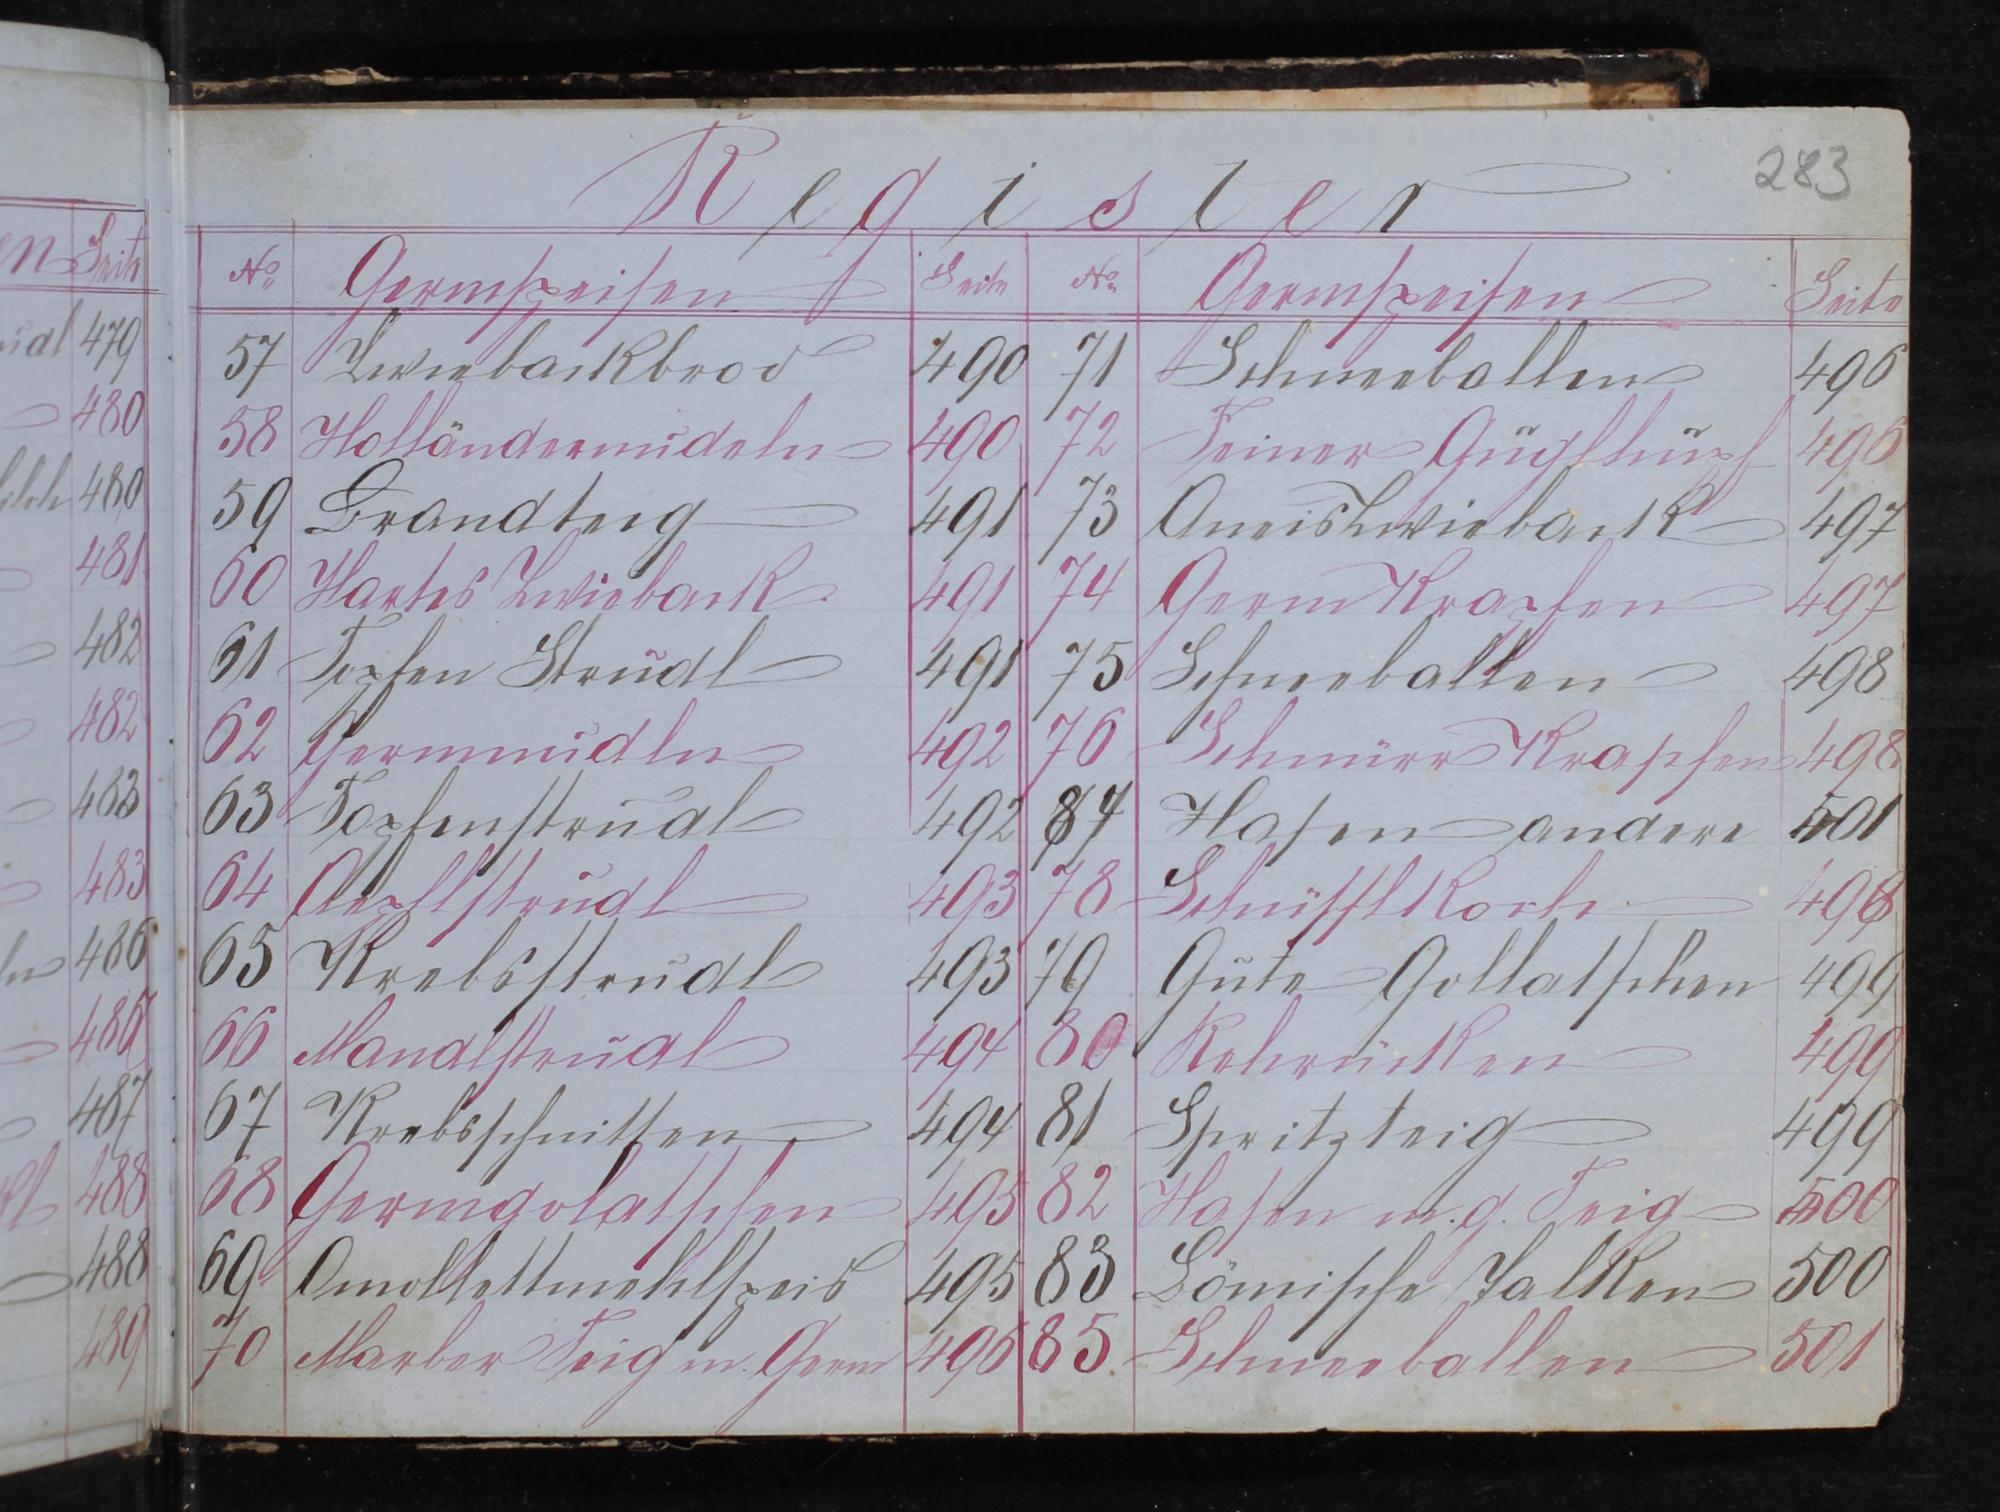 283
Register
No. Germspeisen Seite No. Germspeisen Seite
57 Zwiebackbrod 490 71 Schneeballen 496
58 Holländernudeln 490 72 Feiner Guglhupf 496
59 Brandteig 491 73 Aneiszwieback 497
60 Hartes Zwieback 491 74 Germ Krapfen 497
61 Topfen Strudl 491 75 Schneeballen 498
62 Germnudln 492 76 Schnürr Krapfen 498
63 Topfenstrudl 492 87 Hasen andere 501
64 Aepflstrudl 493 78 Schüsslkoch 498
65 Krebsstrudl 493 79 Gute Gollatschen 499
66 Mandlstrudl 494 80 Rehrücken 499
67 Krebsschnitten 494 81 Spritzteig 499
68 Germgolatschen 495 82 Hasen m. g. Teig 500
69 Omollettmehlspeis 495 83 Bömische Talken 500
70 Marber Teig m. Germ 496 85 Schneeballen 501
en Seite
479
480
480
481
482
482
483
483
486
486
487
488
488
489